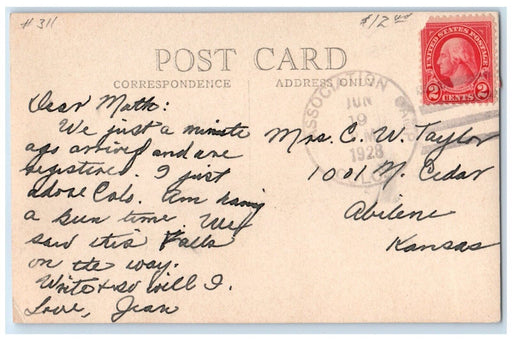 # 311
$12.00
POST CARD
CORRESPONDENCE
ADDRESS ONLY
UNITED STATES POSTAGE
2 CENTS 2
ASSOCIATION CAMP
JUN
19
1928
COLO.
Dear Moth:
We just a minute
ago arrived and are
registered. I just
adore Colo. Am having
a fun time. We
saw this Falls
on the way.
Write & so will I.
Love, Jean
Mrs. C. W. Taylor
1001 N. Cedar
Abilene
Kansas